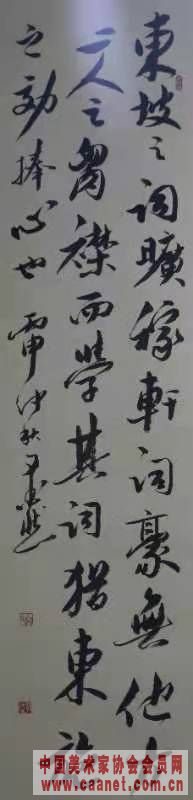 東坡之詞曠稼軒詞豪無他
二人之胷襟而學其詞猶東施
之効捧心也 丙申仲秋
中国美术家协会会员网
www.caanet.com.cn